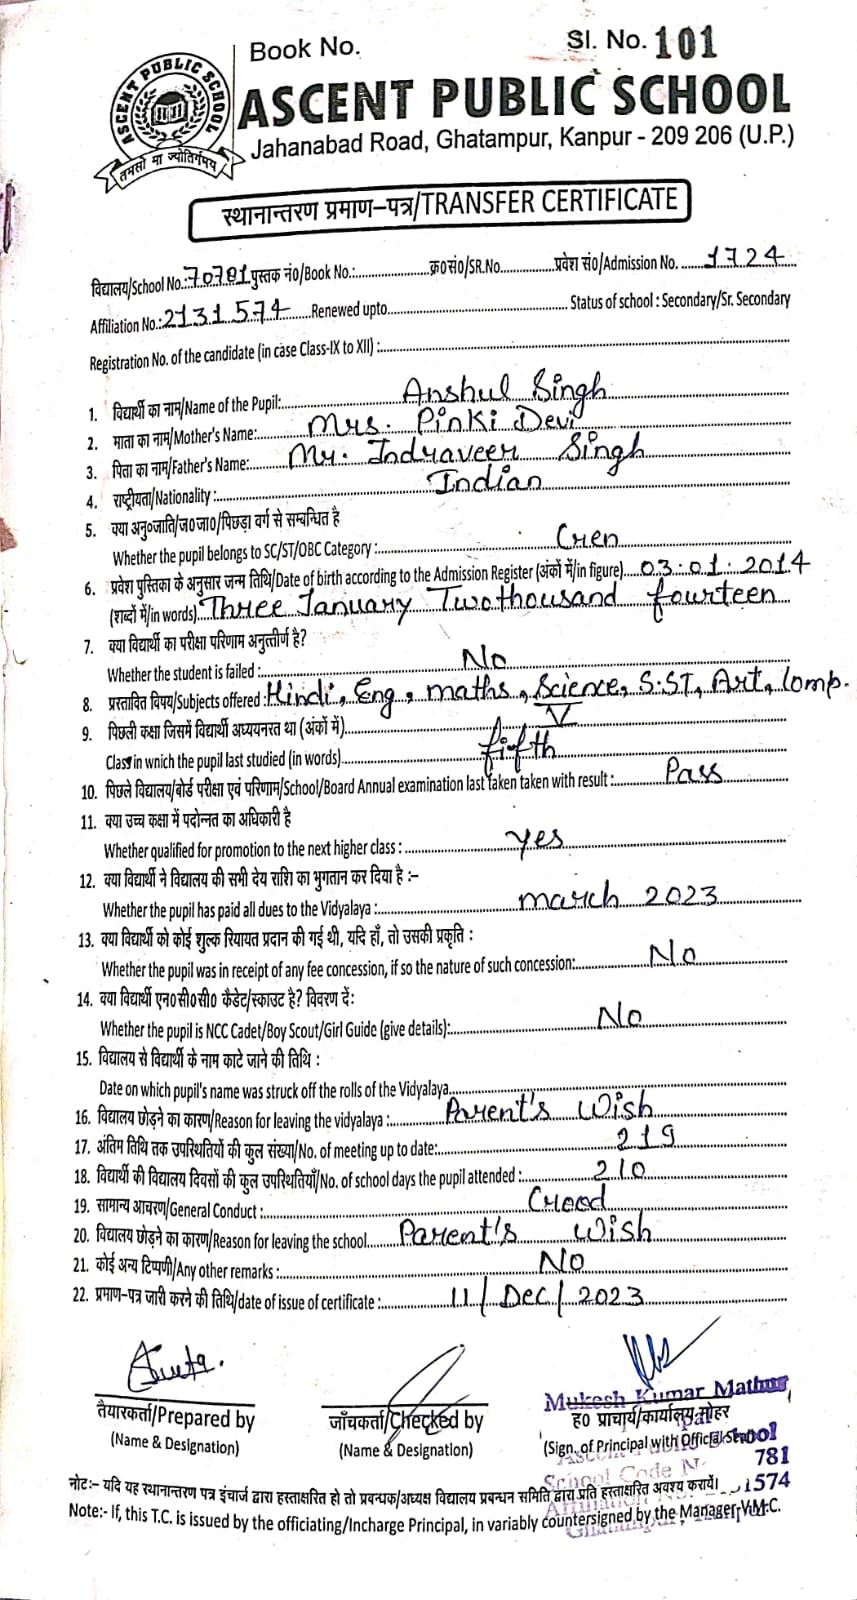 Book No.
Sl. No. 101
ASCENT PUBLIC SCHOOL
तमसो मा ज्योतिर्गमय
ASCENT PUBLIC SCHOOL
Jahanabad Road, Ghatampur, Kanpur - 209 206 (U.P.)
स्थानान्तरण प्रमाण-पत्र/TRANSFER CERTIFICATE
विद्यालय/School No.: 70781 पुस्तक नं०/Book No.:............ क्र०सं०/SR.No............ प्रवेश सं०/Admission No. ...... 1724
Affiliation No.: 2131574 ......Renewed upto............ Status of school : Secondary/Sr. Secondary
Registration No. of the candidate (in case Class-IX to XII) :............
1. विद्यार्थी का नाम/Name of the Pupil: Anshul Singh
2. माता का नाम/Mother's Name: Mrs. Pinki Devi
3. पिता का नाम/Father's Name: Mr. Indraveer Singh
4. राष्ट्रीयता/Nationality : Indian
5. क्या अनु०जाति/ज०जा०/पिछड़ा वर्ग से सम्बन्धित है
Whether the pupil belongs to SC/ST/OBC Category : Gen
6. प्रवेश पुस्तिका के अनुसार जन्म तिथि/Date of birth according to the Admission Register (अंकों में/in figure) 03.01.2014
(शब्दों में/in words) Three January Two thousand fourteen
7. क्या विद्यार्थी का परीक्षा परिणाम अनुत्तीर्ण है?
Whether the student is failed : No
8. प्रस्तावित विषय/Subjects offered : Hindi, Eng, maths, Science, S.ST, Art, Comp.
9. पिछली कक्षा जिसमें विद्यार्थी अध्ययनरत था (अंकों में) V
Class in which the pupil last studied (in words) fifth
10. पिछले विद्यालय/बोर्ड परीक्षा एवं परिणाम/School/Board Annual examination last taken taken with result : Pass
11. क्या उच्च कक्षा में पदोन्नत का अधिकारी है
Whether qualified for promotion to the next higher class : yes
12. क्या विद्यार्थी ने विद्यालय की सभी देय राशि का भुगतान कर दिया है :-
Whether the pupil has paid all dues to the Vidyalaya : march 2023
13. क्या विद्यार्थी को कोई शुल्क रियायत प्रदान की गई थी, यदि हाँ, तो उसकी प्रकृति :
Whether the pupil was in receipt of any fee concession, if so the nature of such concession: No
14. क्या विद्यार्थी एन०सी०सी० कैडेट/स्काउट है? विवरण दें:
Whether the pupil is NCC Cadet/Boy Scout/Girl Guide (give details): No
15. विद्यालय से विद्यार्थी के नाम काटे जाने की तिथि :
Date on which pupil's name was struck off the rolls of the Vidyalaya............
16. विद्यालय छोड़ने का कारण/Reason for leaving the vidyalaya : Parent's Wish
17. अंतिम तिथि तक उपस्थितियों की कुल संख्या/No. of meeting up to date: 219
18. विद्यार्थी की विद्यालय दिवसों की कुल उपस्थितियाँ/No. of school days the pupil attended : 210
19. सामान्य आचरण/General Conduct : Good
20. विद्यालय छोड़ने का कारण/Reason for leaving the school Parent's Wish
21. कोई अन्य टिप्पणी/Any other remarks : No
22. प्रमाण-पत्र जारी करने की तिथि/date of issue of certificate : 11/Dec/2023
Mukesh Kumar Mathur
तैयारकर्ता/Prepared by
(Name & Designation)
जाँचकर्ता/Checked by
(Name & Designation)
ह० प्राचार्य/कार्यालय मोहर
(Sign. of Principal with Official Seal)
School Code N
781
1574
नोट:- यदि यह स्थानान्तरण पत्र इंचार्ज द्वारा हस्ताक्षरित हो तो प्रबन्धक/अध्यक्ष विद्यालय प्रबन्धन समिति द्वारा प्रति हस्ताक्षरित अवश्य करायें।
Note:- If, this T.C. is issued by the officiating/Incharge Principal, in variably countersigned by the Manager V.M.C.